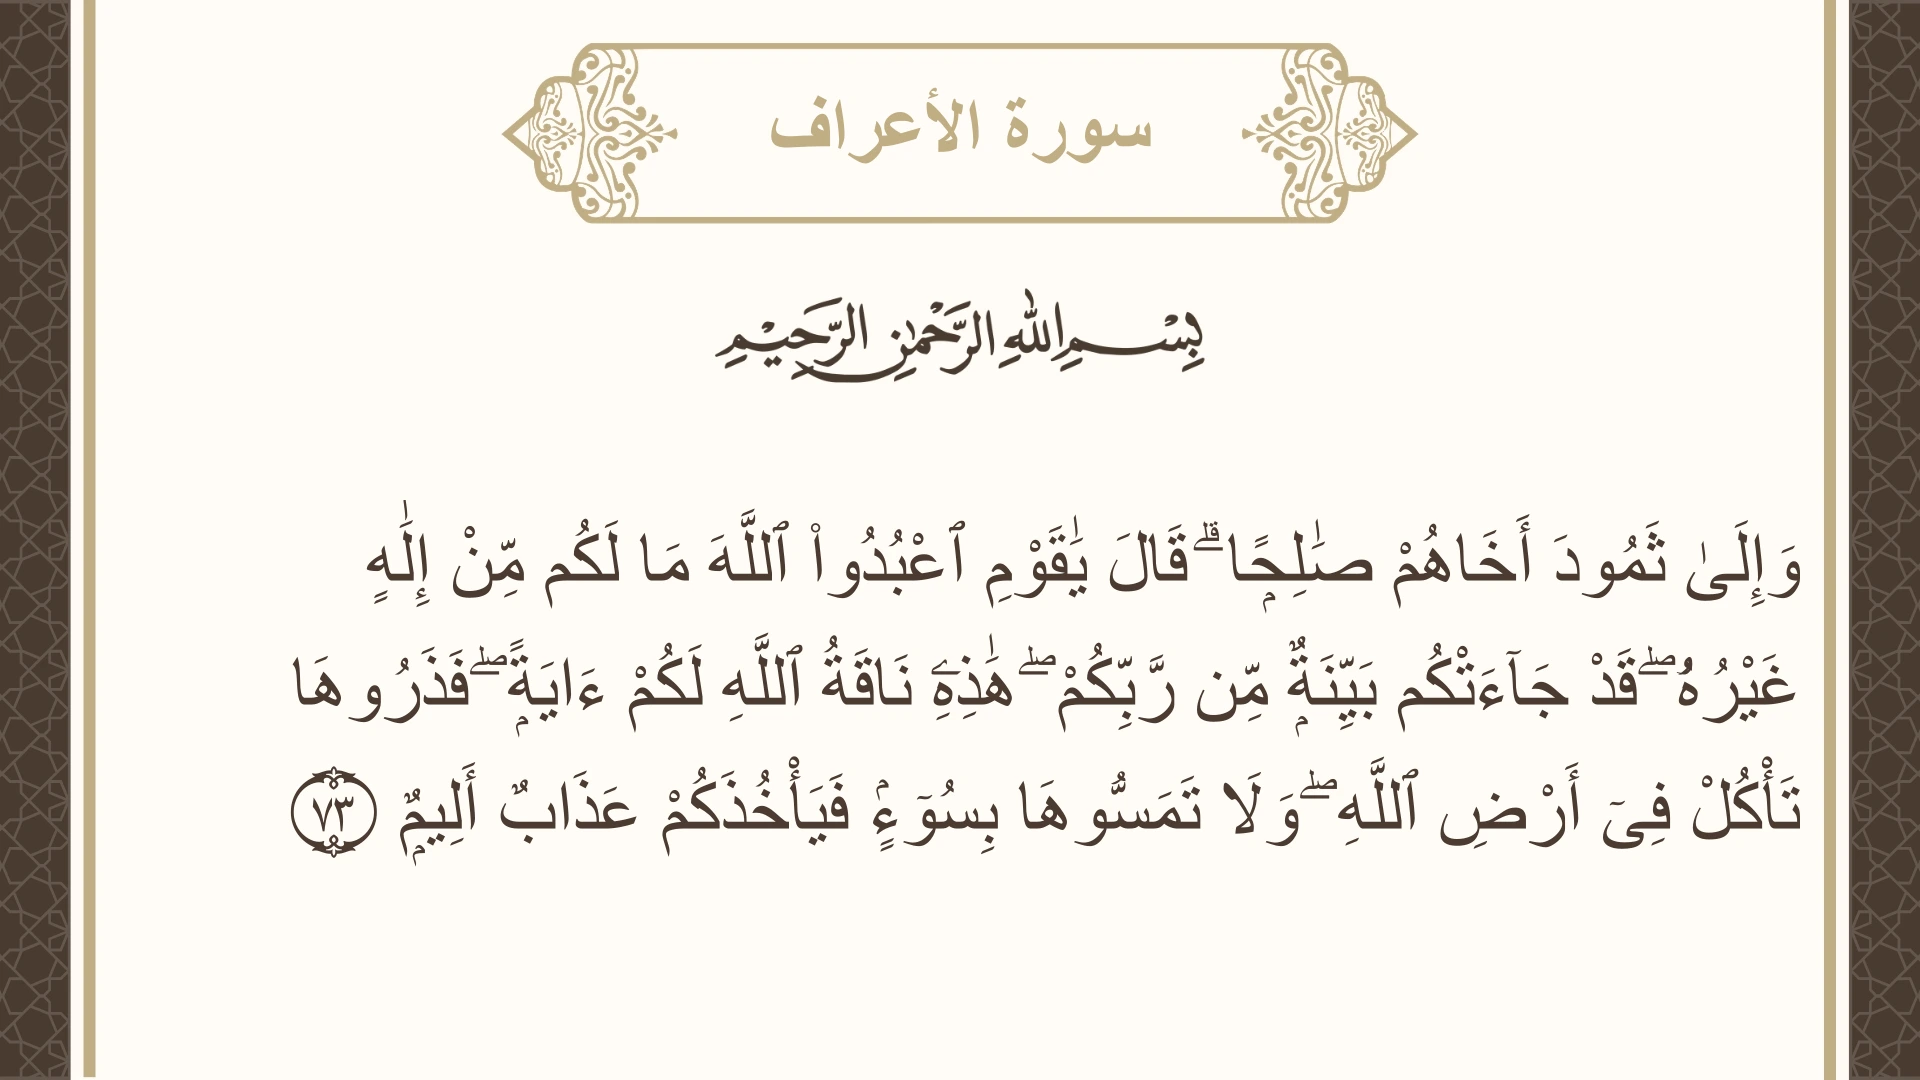 سورة الأعراف
بِسْمِ اللهِ الرَّحْمٰنِ الرَّحِيْمِ
وَإِلَىٰ ثَمُودَ أَخَاهُمْ صَـٰلِحًۭا ۗ قَالَ يَـٰقَوْمِ ٱعْبُدُوا۟ ٱللَّهَ مَا لَكُم مِّنْ إِلَـٰهٍ
غَيْرُهُۥ ۖ قَدْ جَآءَتْكُم بَيِّنَةٌۭ مِّن رَّبِّكُمْ ۖ هَـٰذِهِۦ نَاقَةُ ٱللَّهِ لَكُمْ ءَايَةًۭ ۖ فَذَرُوهَا
تَأْكُلْ فِىٓ أَرْضِ ٱللَّهِ ۖ وَلَا تَمَسُّوهَا بِسُوٓءٍۢ فَيَأْخُذَكُمْ عَذَابٌ أَلِيمٌۭ ٧٣